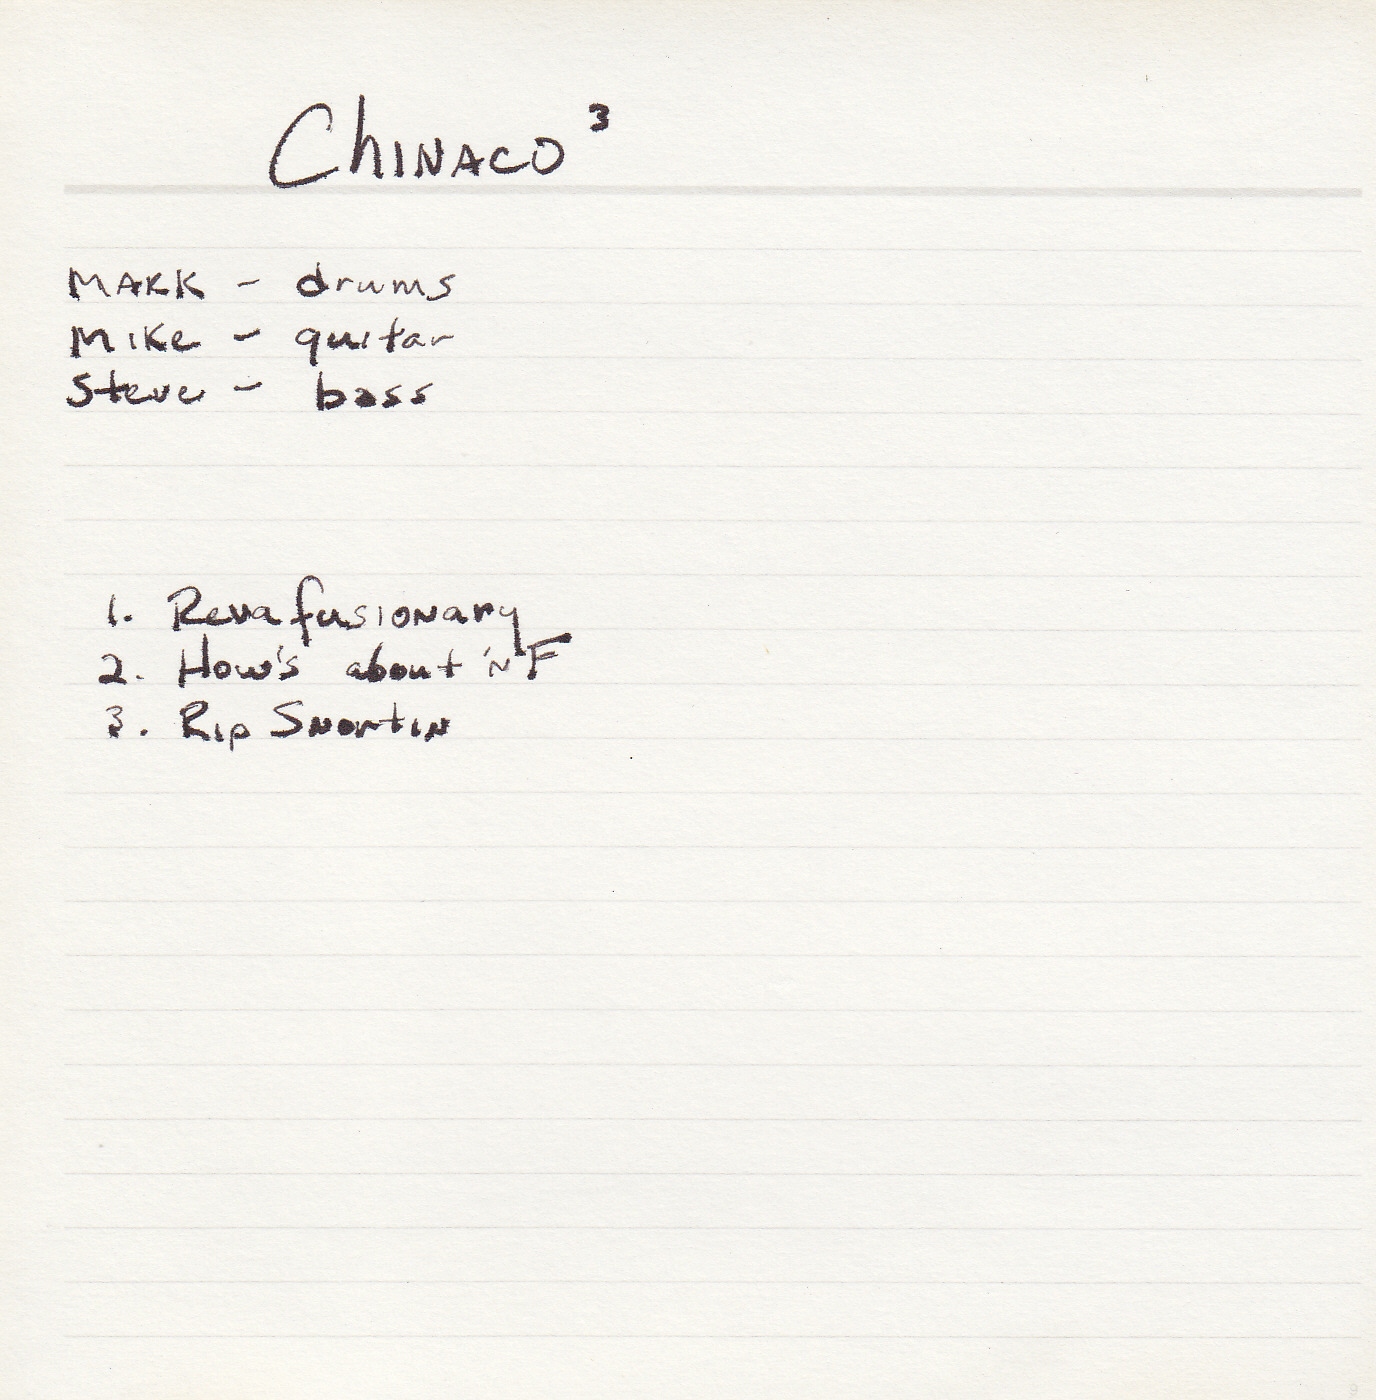 Chinaco³
Mark - drums
Mike - guitar
Steve - bass
1. Revafusionary
2. How's about 'n F
3. Rip Snortin